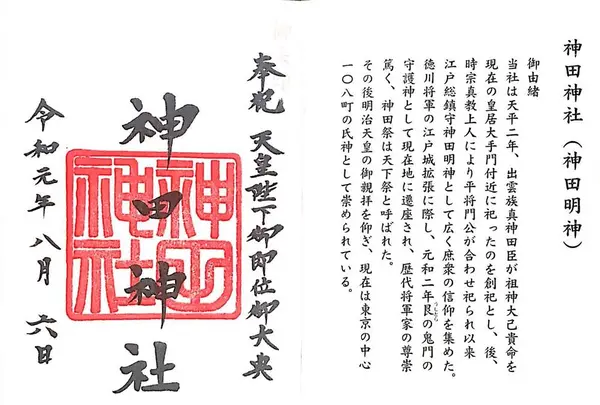 神田神社（神田明神）
御由緒
当社は天平二年、出雲族真神田臣が祖神大己貴命を
現在の皇居大手門付近に祀ったのを創祀とし、後、
時宗真教上人により平将門公が合わせ祀られ以来
江戸総鎮守神田明神として広く庶衆の信仰を集めた。
徳川将軍の江戸城拡張に際し、元和二年艮の鬼門の
うしとら
守護神として現在地に遷座され、歴代将軍家の尊崇
篤く、神田祭は天下祭と呼ばれた。
その後明治天皇の御親拝を仰ぎ、現在は東京の中心
一〇八町の氏神として崇められている。
奉祝 天皇陛下御即位御大典
神田神社
神田神社
令和元年八月六日